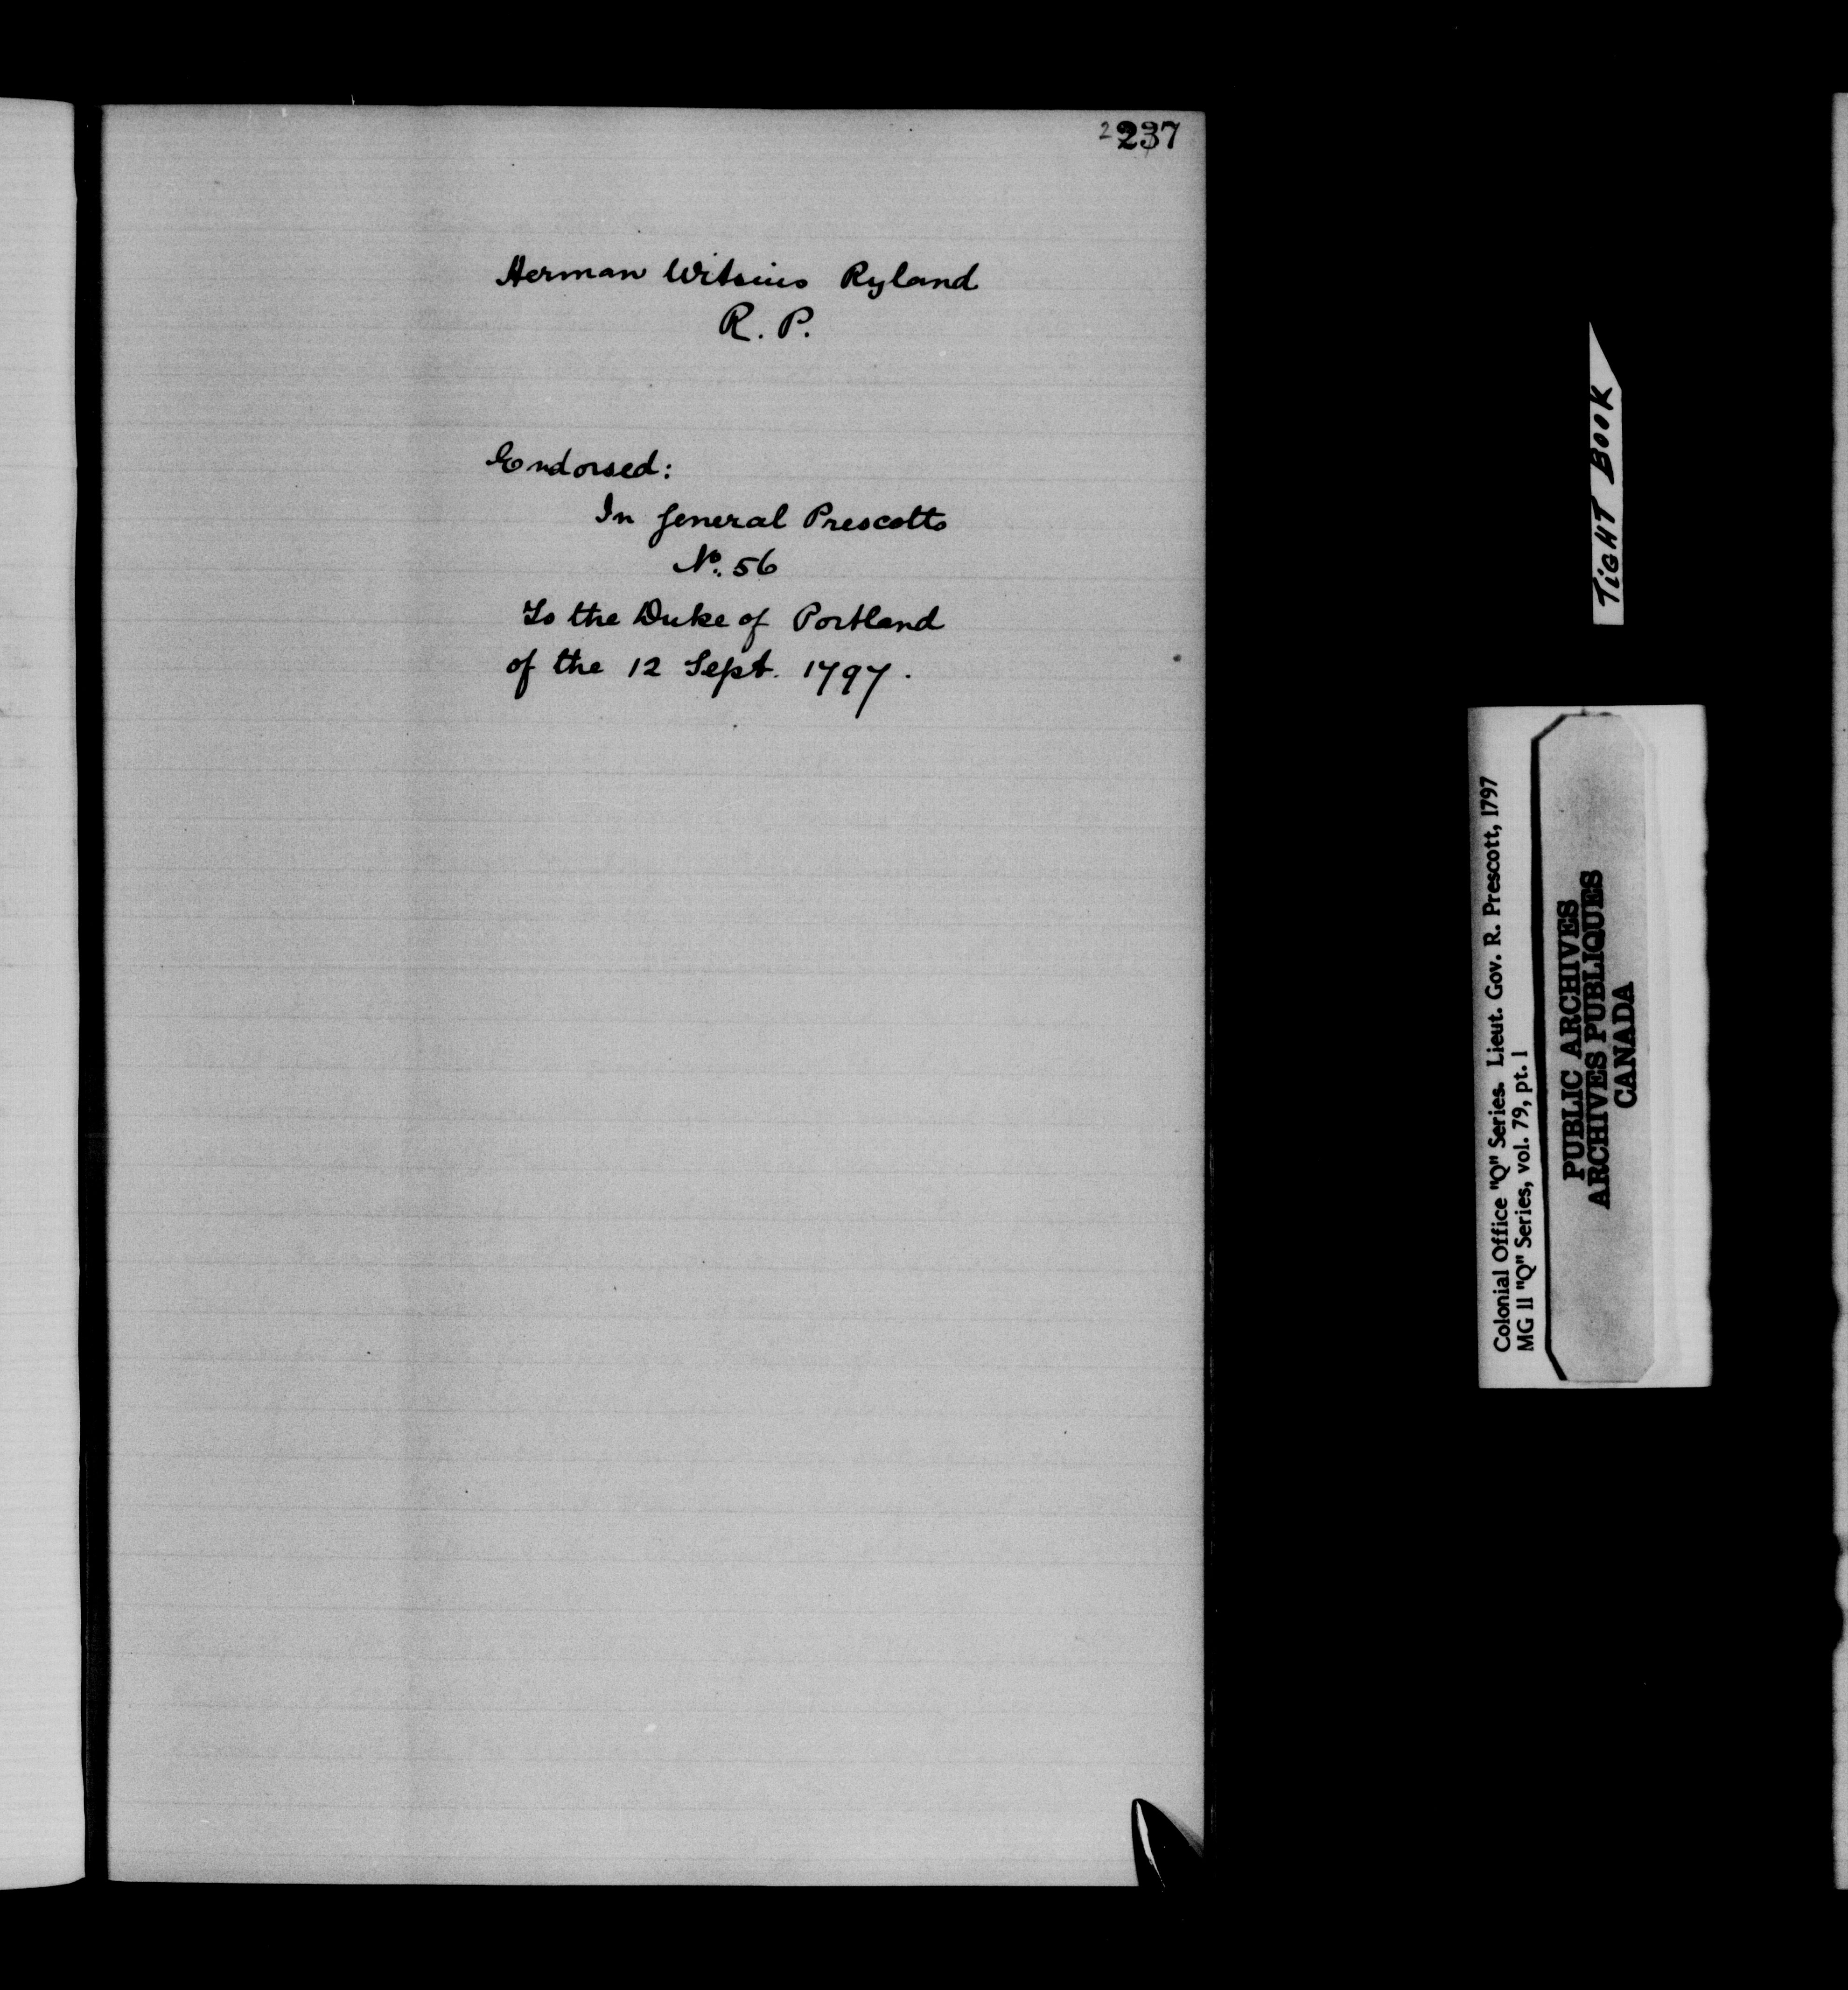 237
Herman Witsius Ryland
R. P.
Endorsed:
In General Prescotts
No. 56
To the Duke of Portland
of the 12 Sept. 1797.
TIGHT BOOK
Colonial Office "Q" Series. Lieut. Gov. R. Prescott, 1797
MG 11 "Q" Series, vol. 79, pt. 1
PUBLIC ARCHIVES
ARCHIVES PUBLIQUES
CANADA